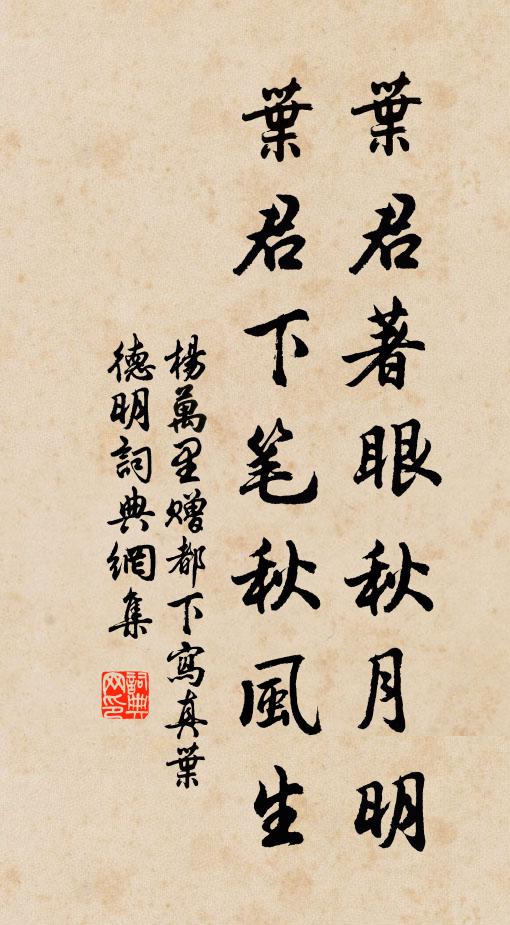 葉君著眼秋月明
葉君下笔秋風生
楊萬里贈都下寫真葉
德明詞典網集
詞典
网印